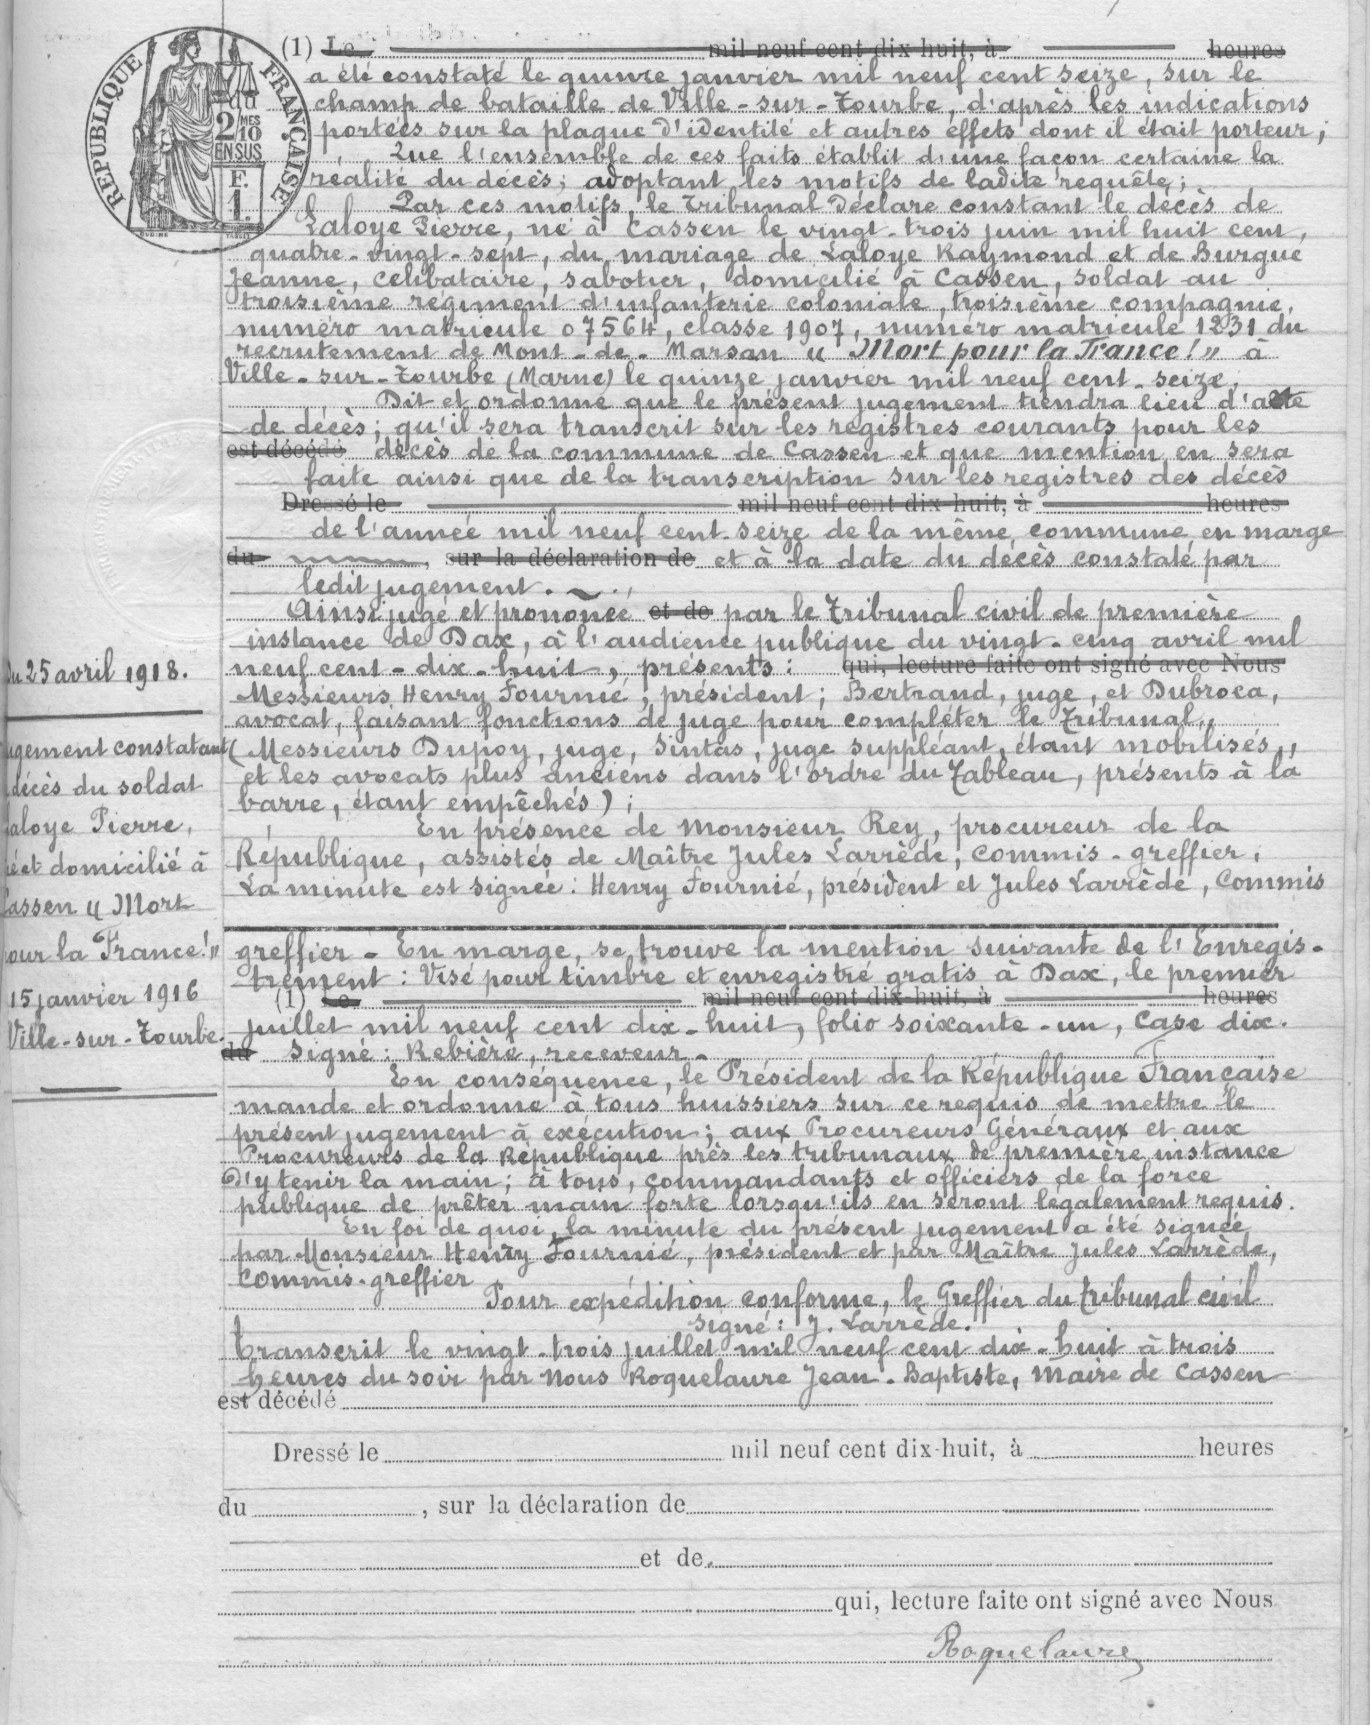 RÉPUBLIQUE FRANÇAISE
2 MES
10
EN SUS
F.
1.
(1) Le mil neuf cent dix-huit, à heures
a été constaté le quinze janvier mil neuf cent seize, sur le
champ de bataille de Ville-sur-Tourbe, d'après les indications
portées sur la plaque d'identité et autres effets dont il était porteur;
Que l'ensemble de ces faits établit d'une façon certaine la
réalité du décès; adoptant les motifs de ladite requête;
Par ces motifs, le Tribunal Déclare constant le décès de
Laloye Pierre, né à Cassen le vingt-trois juin mil huit cent
quatre-vingt-sept, du mariage de Laloye Raymond et de Burgué
Jeanne, célibataire, sabotier, domicilié à Cassen, soldat au
troisième régiment d'infanterie coloniale, troisième compagnie,
numéro matricule 07564, classe 1907, numéro matricule 1231 du
recrutement de Mont-de-Marsan " Mort pour la France!" à
Ville-sur-Tourbe (Marne) le quinze janvier mil neuf cent-seize;
Dit et ordonne que le présent jugement tiendra lieu d'acte
de décès; qu'il sera transcrit sur les registres courants pour les
est décédé décès de la commune de Cassen et que mention en sera
faite ainsi que de la transcription sur les registres des décès
Dressé le mil neuf cent dix-huit, à heures
de l'année mil neuf cent-seize de la même commune en marge
du , sur la déclaration de et à la date du décès constaté par
ledit jugement.
Ainsi jugé et prononcé et de par le Tribunal civil de première
instance de Dax, à l'audience publique du vingt-cinq avril mil
neuf cent-dix-huit, présents: qui, lecture faite ont signé avec Nous
Messieurs Henry Fournié, président; Bertrand, juge, et Dubroca,
avocat, faisant fonctions de juge pour compléter le Tribunal,
(Messieurs Dupoy, juge, Sintas, juge suppléant, étant mobilisés,
et les avocats plus anciens dans l'ordre du Tableau, présents à la
barre, étant empêchés);
En présence de Monsieur Rey, procureur de la
République, assistés de Maître Jules Larrède, commis-greffier;
La minute est signée: Henry Fournié, président et Jules Larrède, commis
du 25 avril 1918.
ugement constatant
décès du soldat
aloye Pierre,
é et domicilié à
Cassen " Mort
our la France!"
15 janvier 1916
Ville-sur-Tourbe.
greffier - En marge, se trouve la mention suivante de l'Enregis-
trement: Visé pour timbre et enregistré gratis à Dax, le premier
(1) Le mil neuf cent dix-huit, à heures
juillet mil neuf cent dix-huit, folio soixante-un, case dix.
du signé: Rebière, receveur.
En conséquence, le Président de la République Française
mande et ordonne à tous huissiers sur ce requis de mettre le
présent jugement à exécution; aux Procureurs Généraux et aux
Procureurs de la République près les tribunaux de première instance
D'y tenir la main; à tous, commandants et officiers de la force
publique de prêter main forte lorsqu'ils en seront légalement requis.
En foi de quoi, la minute du présent jugement a été signée
par Monsieur Henry Fournié, président et par Maître Jules Larrède,
commis-greffier
Pour expédition conforme, le Greffier du tribunal civil
Signé: J. Larrède.
Transcrit le vingt-trois juillet mil neuf cent dix-huit à trois
heures du soir par Nous Roquelaure Jean-Baptiste, Maire de Cassen
est décédé
Dressé le mil neuf cent dix-huit, à heures
du , sur la déclaration de
et de
qui, lecture faite ont signé avec Nous
Roquelaure